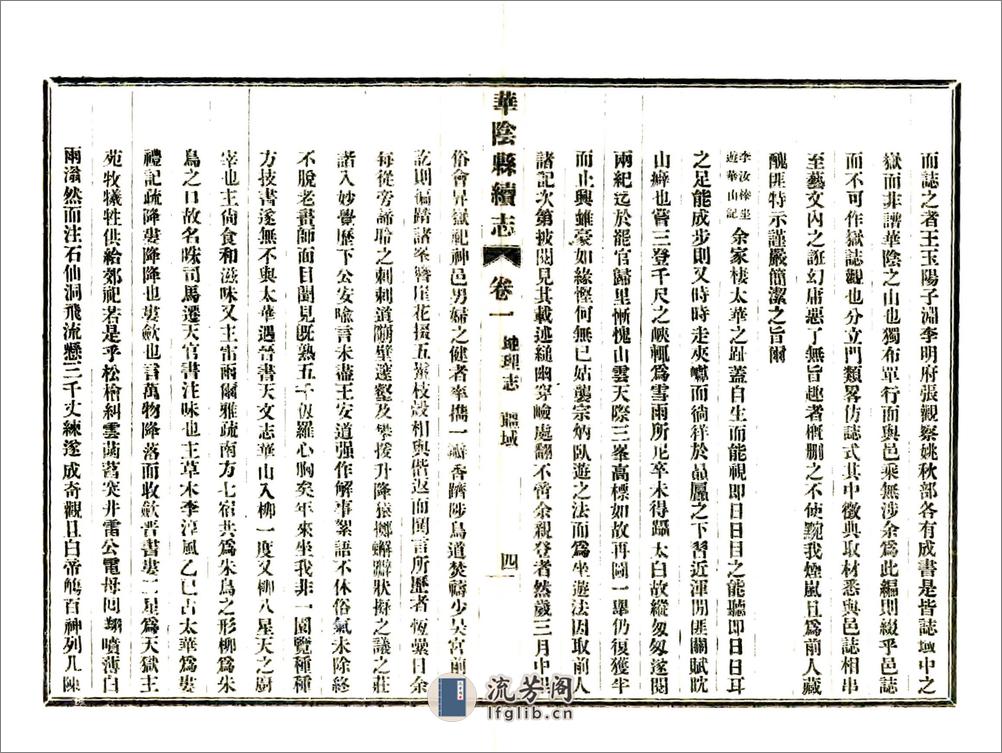 而誌之者王玉陽子淵李明府張觀察姚秋部各有成書是皆誌域中之
嶽而非譜華陰之山也獨布單行而與邑乘無涉余為此編則綴乎邑誌
而不可作嶽誌觀也分立門類畧仿誌式其中徵典取材悉與邑誌相串
至藝文內之誕幻庸惡了無旨趣者概刪之不使黦我煙嵐且為前人藏
醜匪特示謹嚴簡潔之旨爾
李汝榛坐
遊華山記
余家棲太華之趾蓋自生而能視即日目之能聽即日耳
之足能成步則又時時走夾嶂而徜徉於巔麓之下習近渾閒匪關賦眈
山癖也嘗三登千尺之峽輒為雪雨所尼卒未得躡太白故縱匆匆遂閱
兩紀迄於罷官歸里慚愧山雲天際三峯高標如故再圖一舉仍復獲半
而止興雖豪如緣慳何無已姑襲宗炳臥遊之法而為坐遊法因取前人
諸記次第披閱見其載述縋幽窄嶮處翻不啻余親登者然歲三月中里
華陰縣續志
卷一
地理志
疆域
四
俗會昇嶽祀神邑男婦之健者率擕一瓣香躋陟鳥道焚禱少昊宮前
訖則徧踏諸峯簪尾花援五鬣枝旋相與偕返而閧言所歷者恆纍日余
每從旁諦聆之刺刺道闢壁邃壑及攀援升降猿擲蠏躃狀擬之議之莊
諸入妙覺歷下公安喻言未盡王安道强作解事絮語不休俗氣未除終
不脫老畫師面目聞見旣熟五千仭羅心胸矣年來坐我非一圖覽種種
方技書遂無不與太華遇晉書天文志華山入柳一度又柳八星天之廚
宰也主尙食和滋味又主雷雨爾雅疏南方七宿共為朱鳥之形柳為朱
鳥之口故名咮司馬遷天官書注味也主草木李淳風乙巳占太華為婁
禮記疏降婁降降也婁斂也言萬物降落而收斂晉書婁二星為天獄主
苑牧犧牲供給郊祀若是乎松檜糾雲菡萏突井雷公電母囘翔噴薄白
雨滃然而注石仙洞飛流懸三千丈練遂成奇觀且白帝觴百神列几陳
流芳阁
lfglib.cn